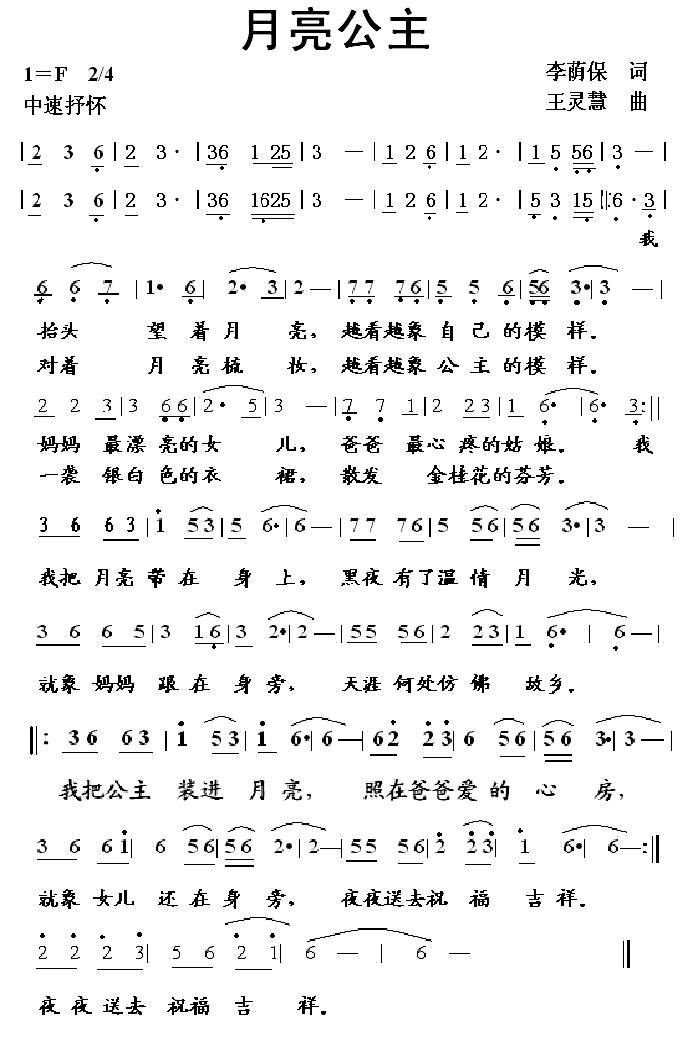 月亮公主
1=F 2/4 李荫保 词
中速抒怀 王灵慧 曲
|2 3 6|2 3·|36 125|3 —|1 2 6|1 2·|1 5 56|3 —|
|2 3 6|2 3·|36 1625|3 —|1 2 6|1 2·|5 3 15|:6·3|
我
6 6 7|1·6|2·3|2—|77 76|5 5 6|56 3·|3 —|
抬头 望着月 亮，越看越象自己的模样。
对着 月亮梳 妆，越看越象公主的模样。
2 2 3|3 66|2·5|3—|7 7 1|2 23|1 6·|6· 3:||
妈妈 最漂亮的女 儿，爸爸 最心疼的姑娘。 我
一袭 银白色的衣 裙，散发 金桂花的芬芳。
3 6 63|1 53|5 6·|6 —|77 76|5 56|56 3·|3 —|
我把月亮带在身上，黑夜有了温情月光，
36 65|3 16|3 2·|2—|55 56|2 23|1 6·|6—|
就象妈妈 跟在身旁， 天涯何处仿佛 故乡。
||:36 63|1 53|1 6·|6—|62 23|6 56|56 3·|3—|
我把公主 装进月亮， 照在爸爸爱的心房，
36 61|6 56|56 2·|2—|55 56|2 23|1 6·|6—:||
就象女儿 还在身旁， 夜夜送去祝福 吉祥。
2 2 2 3|5 6 2 1|6 — |6 — ||
夜夜送去 祝福吉 祥。